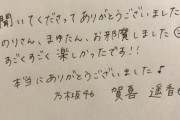 聞いてくださってありがとうございました
のりさん、まゆたん、お邪魔しました
すごくすごく楽しかったです!!
本当にありがとうございました♪
乃木坂46 賀喜 遥香